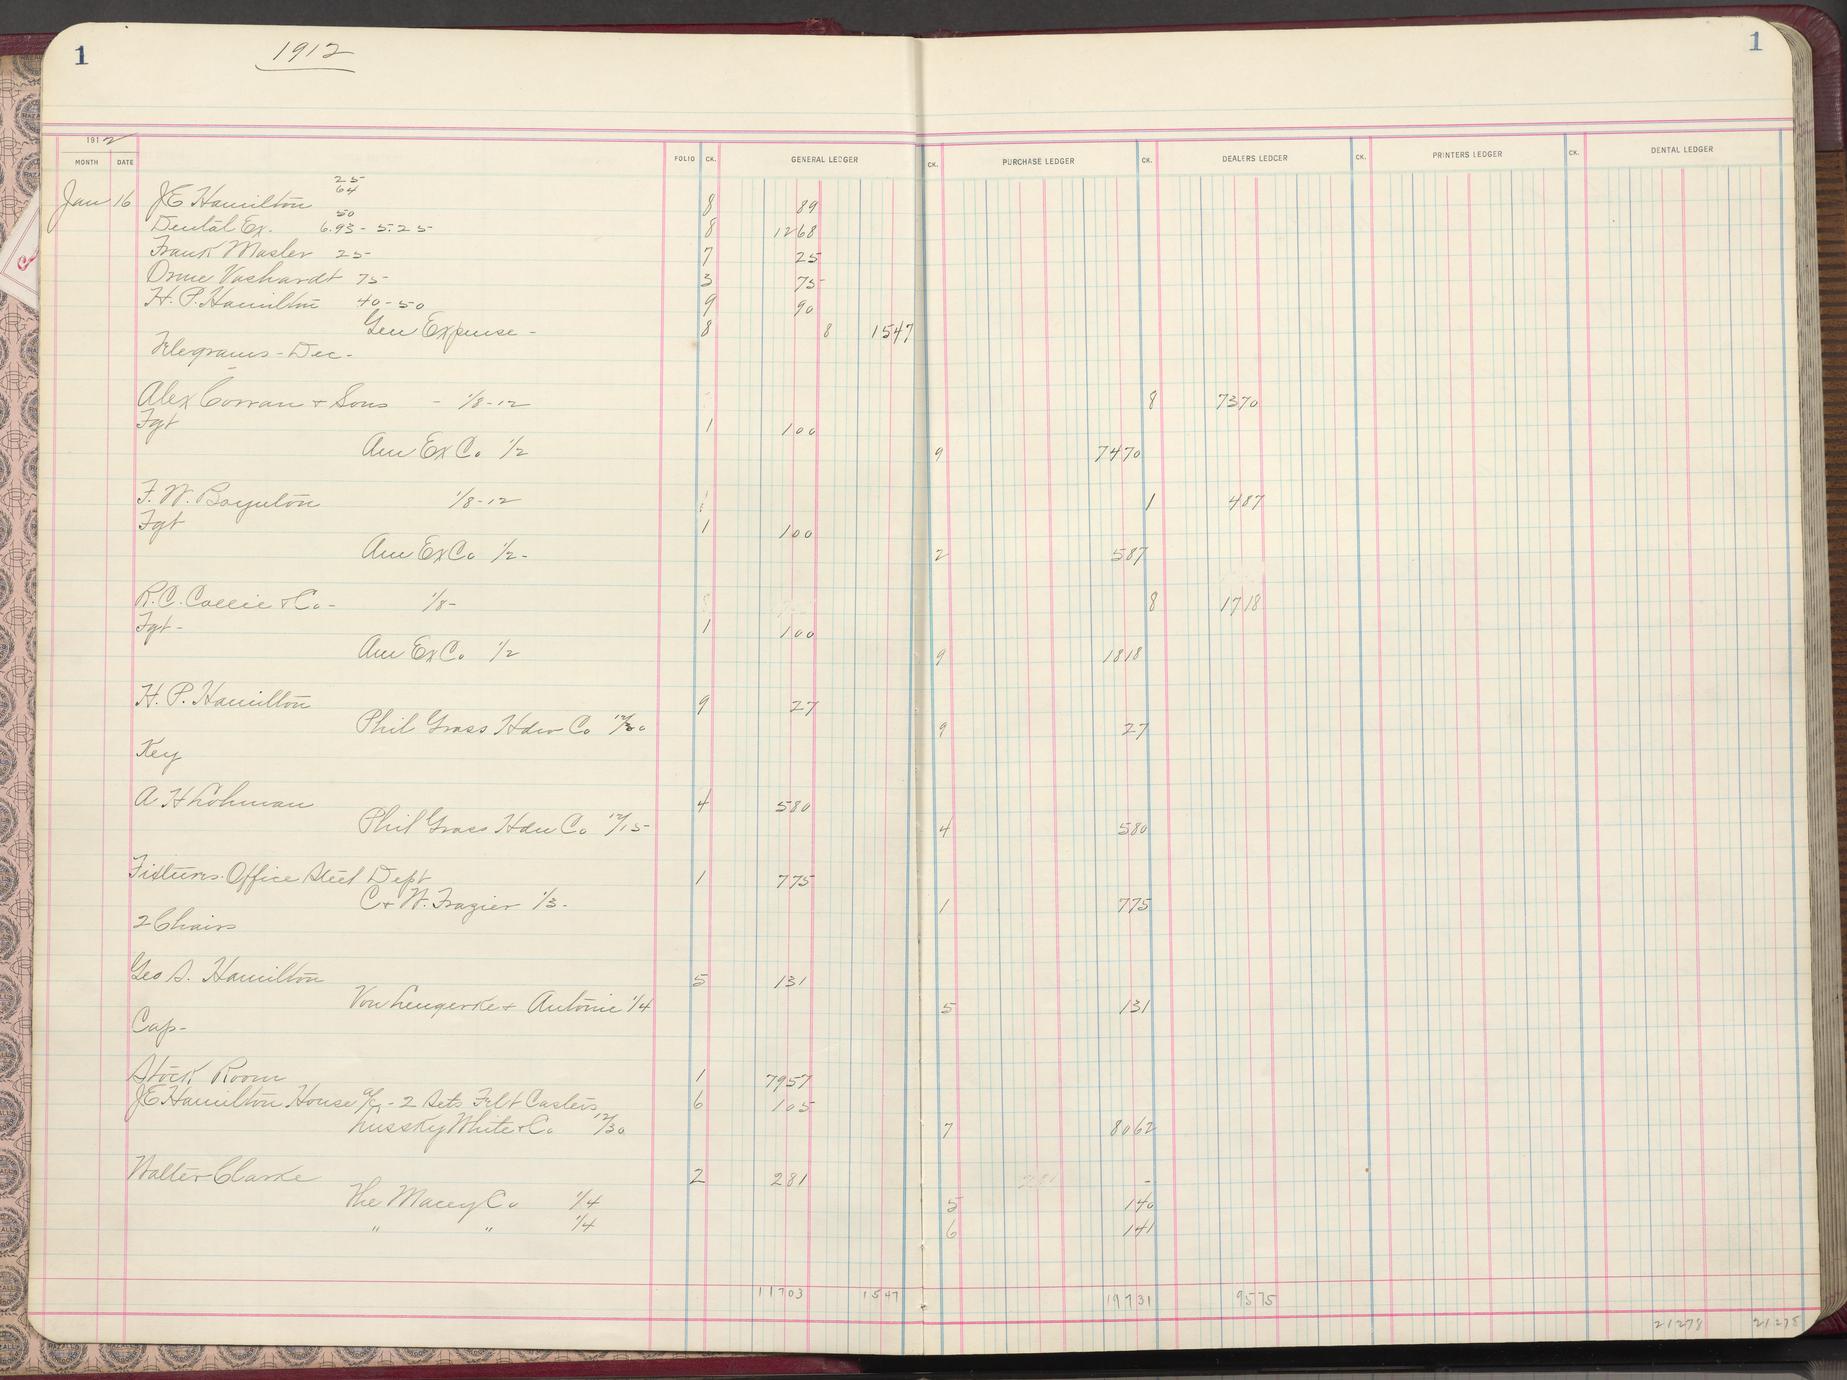 1 1912 1
191 2
MONTH DATE FOLIO CK. GENERAL LEDGER CK. PURCHASE LEDGER CK. DEALERS LEDGER CK. PRINTERS LEDGER CK. DENTAL LEDGER
25
64
Jan 16 J E Hamilton 8 89
50
Dental Ex. 6.93 - 5.25 8 1268
Frank Masler 25 7 25
Orme Vashardt 75 3 75
H. P. Hamilton 40 - 50 9 90
Gen Expense - 8 8 1547
Telegrams - Dec -
Alex Corran & Sons - 1/8-12 8 7370
Fgt 1 100
Am Ex Co 1/2 9 7470
F. W. Boynton 1/8-12 1 487
Fgt 1 100
Am Ex Co 1/2 - 2 587
R. C. Collie & Co - 1/8 - 8 1718
Fgt - 1 100
Am Ex Co 1/2 9 1818
H. P. Hamilton 9 27
Phil Gross Hdw Co 12/30 9 27
Key
A H Lohman 4 580
Phil Gross Hdw Co 12/15 4 580
Fixtures Office Steel Dept 1 775
C & W. Frazier 1/3 - 1 775
2 Chairs
Geo S. Hamilton 5 131
Von Lengerke & Antoine 1/4 5 131
Cap -
Stock Room 1 7957
J E Hamilton House a/c - 2 Sets Felt Casters 6 105
Lussky White & Co 12/30 7 8062
Walter Clarke 2 281 -
The Macey Co 1/4 5 140
" " 1/4 6 141
11703 1547 19731 9575
21278 21278